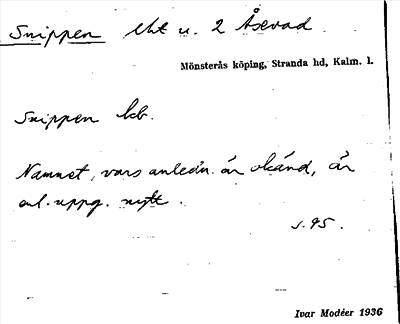 Snippen lht u. 2 Åsevad.
Mönsterås köping, Stranda hd, Kalm. l.
Snippen kb.
Namnet, vars anledn. är okänd, är
enl. uppg. nytt.
s. 95.
Ivar Modéer 1936